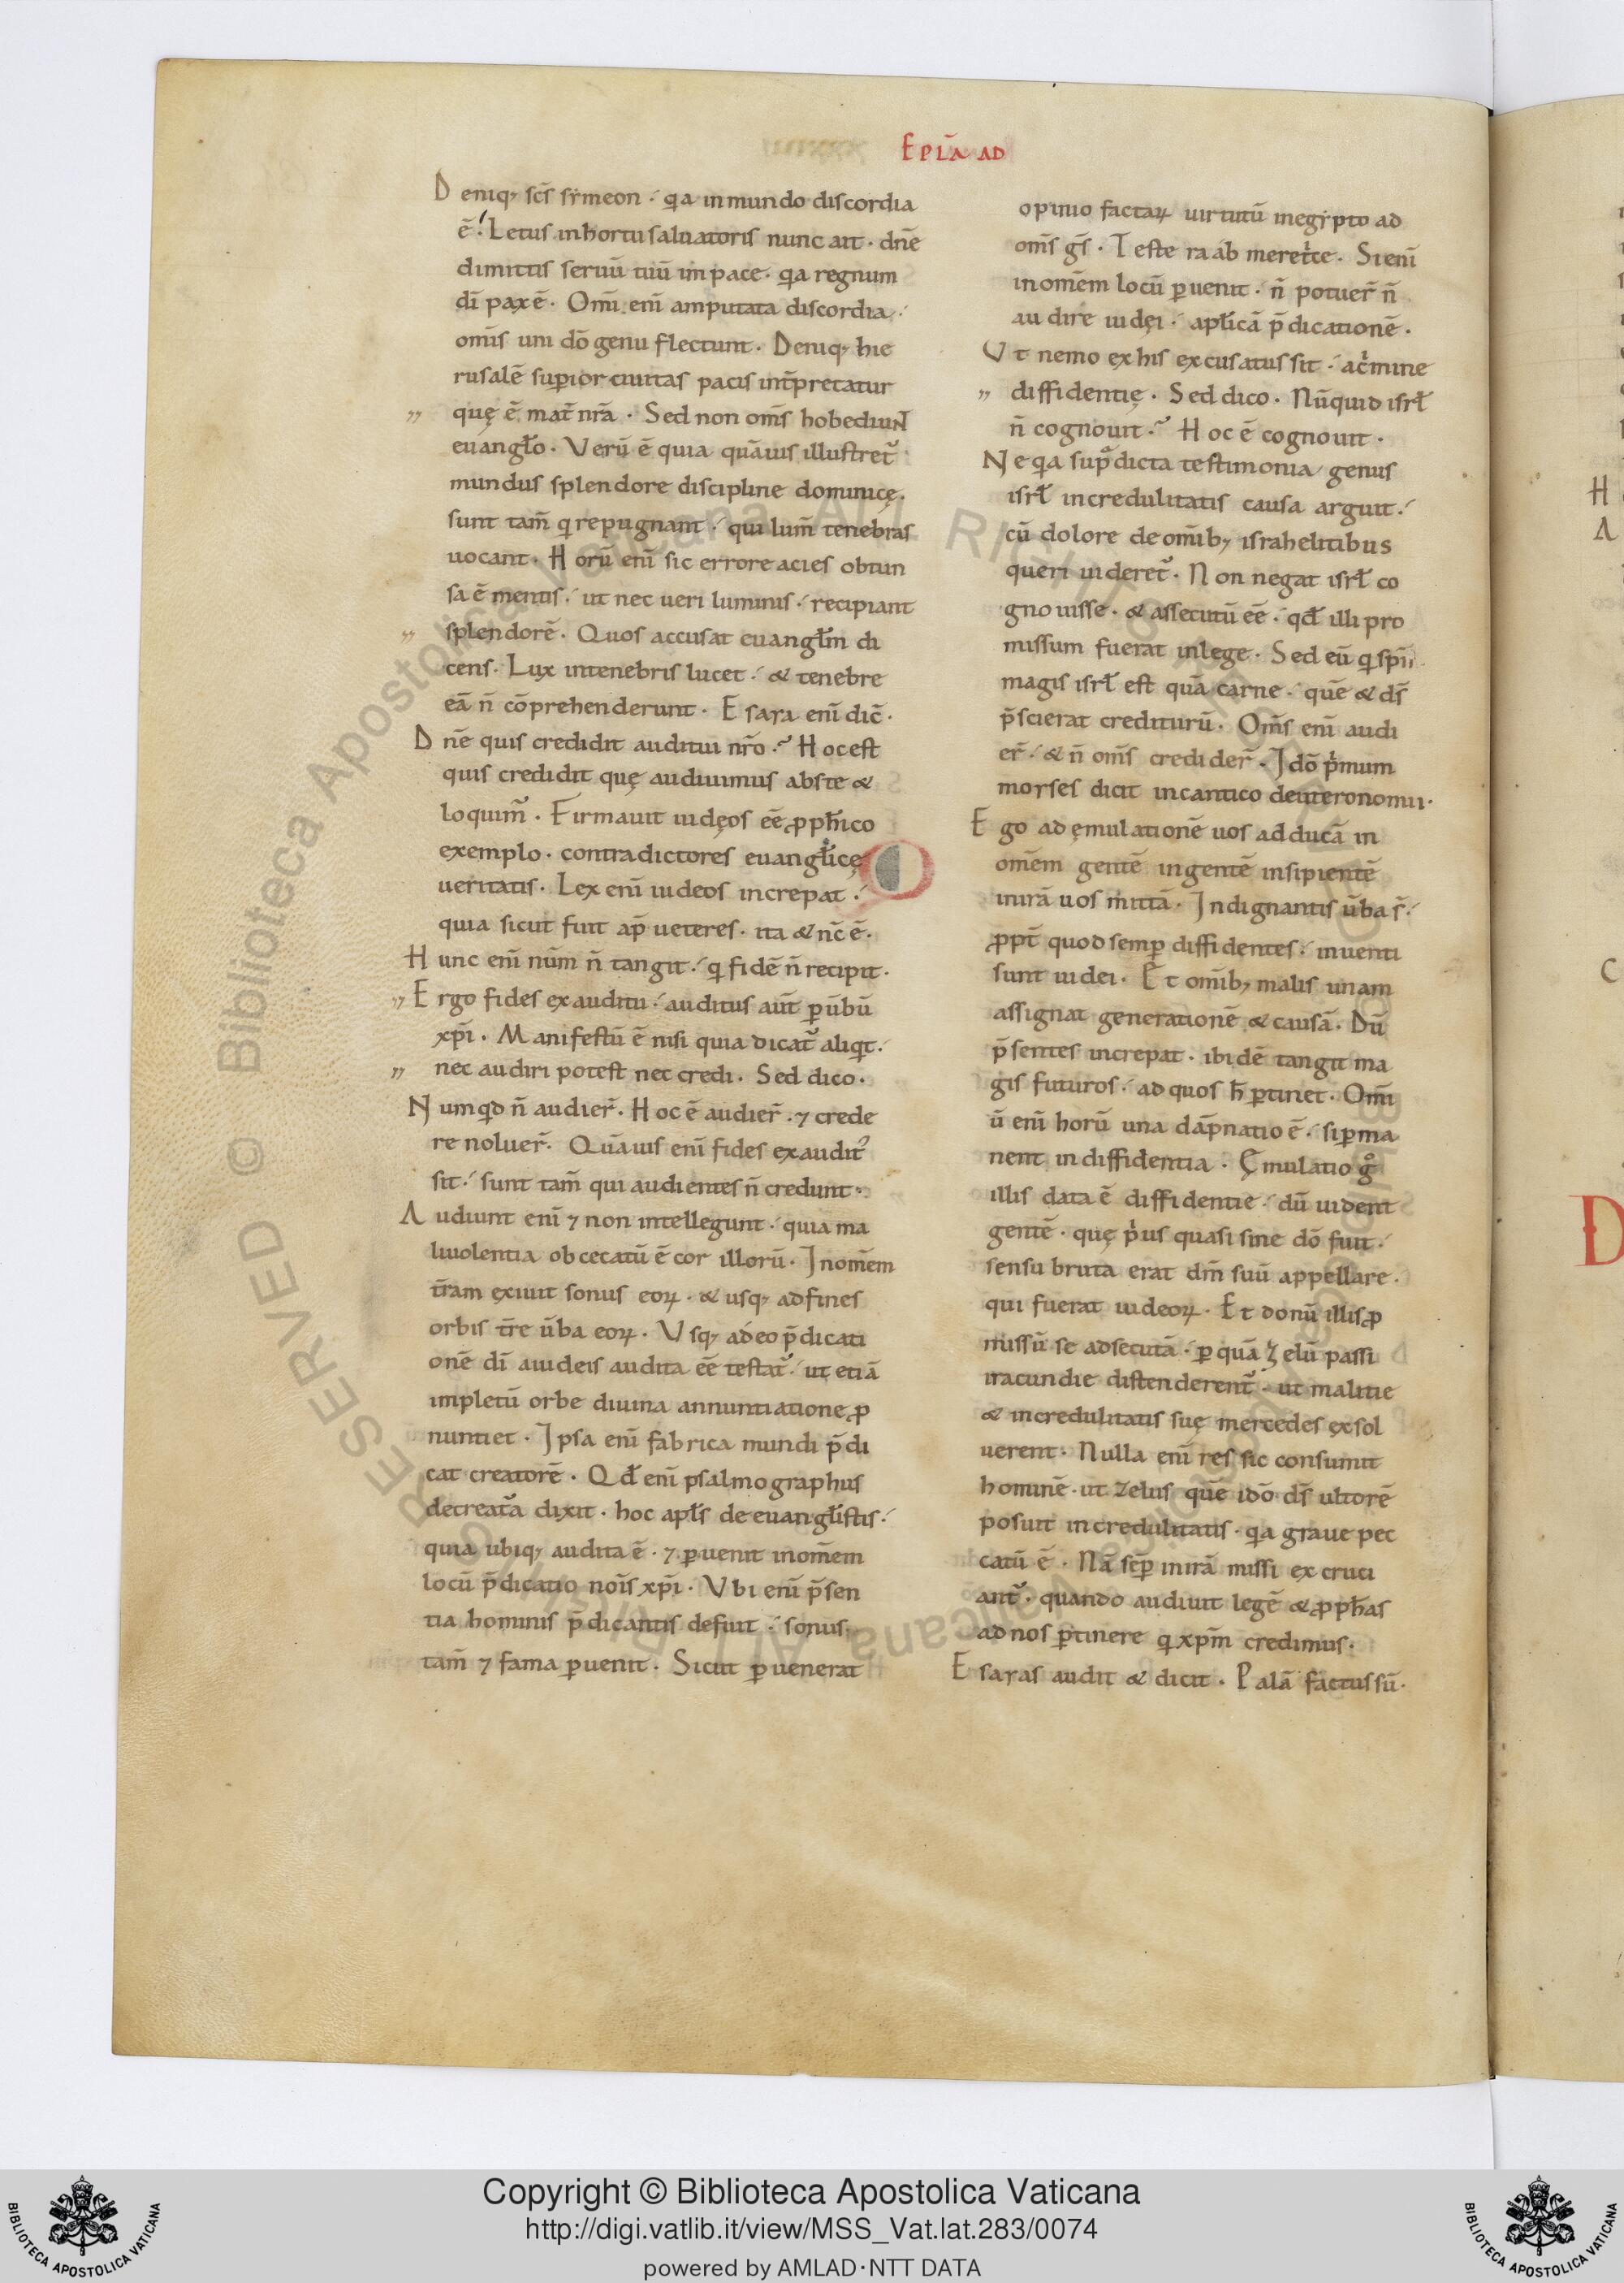 EPLA AD
Deniq; scs symeon · qa in mundo discordia
ē · Letus in hortu saluatoris nunc ait · dnē
dimittis seruū tuū in pace · qa regnum
dī pax ē · Omī enī amputata discordia ·
omīs uni dō genu flectunt · Deniq; hie
rusalē supior ciuitas pacis intpretatur
„ quę ē mat nra · Sed non oms hobediunt
euanglo · Verū ē quia quāuis illustret
mundus splendore discipline dominicę ·
sunt tam q repugnant · qui lum tenebras
uocant · Horū enī sic errore acies obtun
sa ē mentis · ut nec ueri luminis · recipiant
„ splendorē · Quos accusat euanglm di
cens · Lux in tenebris lucet · & tenebre
eā n̄ cōprehenderunt · Esaya enī dic ·
Dnē quis credidit auditui nro · Hoc est
quis credidit quę audiuimus abs te &
loquim · Firmauit iudęos eē pphico
exemplo · contradictores euanglicę
ueritatis · Lex enī iudeos increpat ·
quia sicut fuit ap ueteres · ita & nc ē ·
Hunc enī num n̄ tangit · q fidē n̄ recipit ·
„ Ergo fides ex auditu · auditus aut p ubū
xpi · Manifestū ē nisi quia dicat aliqt ·
„ nec audiri potest nec credi · Sed dico ·
Numqd n̄ audier · Hoc ē audier · 7 crede
re noluer · Quāuis enī fides ex audit
sit · sunt tam qui audientes n̄ credunt ·
Audiunt enī 7 non intellegunt · quia ma
liuolentia obcecatū ē cor illorū · In omem
tram exiuit sonus eoꝝ · & usq; ad fines
orbis tre uba eoꝝ · Usq; adeo pdicati
onē dī a iudeis audita eē testat · ut etiā
impletū orbe diuina annuntiatione p
nuntiet · Ipsa enī fabrica mundi pdi
cat creatorē · Qd enī psalmographus
de creata dixit · hoc apls de euanglistis ·
quia ubiq; audita ē · 7 puenit in omem
locū pdicatio nois xpi · Ubi enī psen
tia hominis pdicantis defuit · sonus
tam 7 fama puenit · Sicut puenerat
opinio factaꝝ uirtutū in egypto ad
oms gs · Teste raab meretce · Si enī
in omem locū puenit · n̄ potuer n̄
audire iudęi · aplicā pdicationē ·
Ut nemo ex his excusatus sit · a cmine
„ diffidentię · Sed dico · Nūquid isrl
n̄ cognouit · Hoc ē cognouit ·
Ne qa supdicta testimonia genus
isrl incredulitatis causa arguit ·
cū dolore de omib; israhelitibus
queri uideret · Non negat isrl co
gnouisse · & assecutū eē · qd illi pro
missum fuerat in lege · Sed eū q spi
magis isrl est quā carne · quē & ds
pscierat crediturū · Oms enī audi
er · & n̄ oms credider · Idō pmum
moyses dicit in cantico deuteronomii ·
Ego ad ęmulationē uos adducā in
omem gentē in gentē insipientē
in irā uos mittā · Indignantis uba s ·
ppt quod semp diffidentes · inuenti
sunt iudei · Et omib; malis unam
assignat generationē & causā · Dū
psentes increpat · ibidē tangit ma
gis futuros · ad quos h ptinet · Omi
ū enī horū una dāpnatio ē · si pma
nent in diffidentia · Ęmulatio g
illis data ē diffidentie · dū uident
gentē · quę pus quasi sine dō fuit ·
sensu bruta erat dm suū appellare ·
qui fuerat iudeoꝝ · Et donū illis p
missū se adsecutā · p quā zelū passi
iracundie distenderent · ut malitie
& incredulitatis suę mercedes exsol
uerent · Nulla enī res sic consumit
hominē · ut zelus quē idō ds ultorē
posuit incredulitatis · qa graue pec
catū ē · Nā semp in irā missi excruci
ant · quando audiuit legē & pphas
ad nos ptinere q xpm credimus ·
Esayas audit & dicit · Palā factus sū ·
H
A
C
D
Copyright © Biblioteca Apostolica Vaticana
http://digi.vatlib.it/view/MSS_Vat.lat.283/0074
powered by AMLAD·NTT DATA
BIBLIOTECA APOSTOLICA VATICANA
BIBLIOTECA APOSTOLICA VATICANA